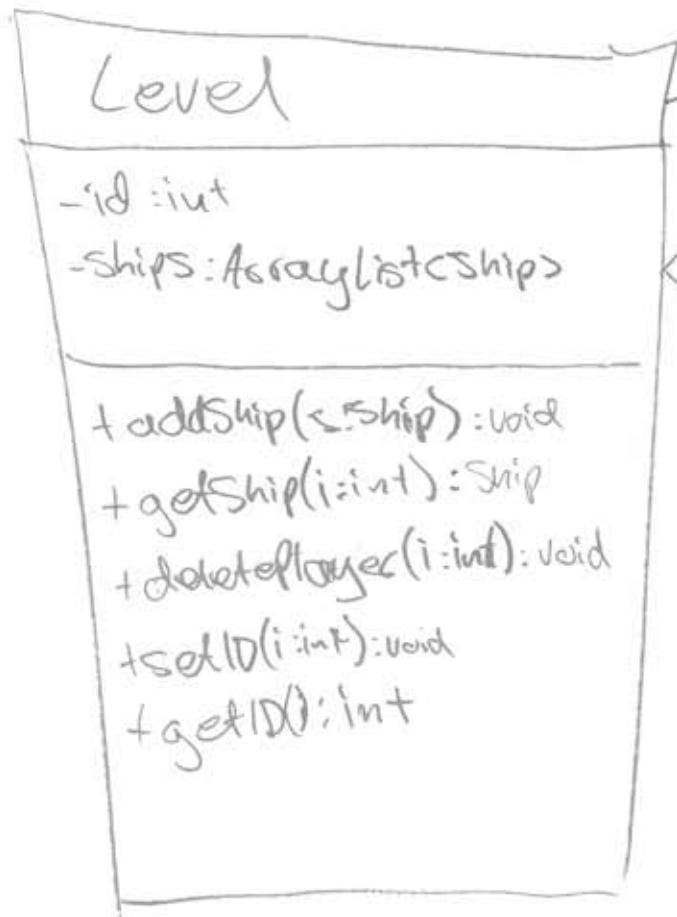 Level
-id :int
-ships:ArrayList<Ship>
+addShip(s:Ship):void
+getShip(i:int):Ship
+deletePlayer(i:int):void
+setID(i:int):void
+getID():int